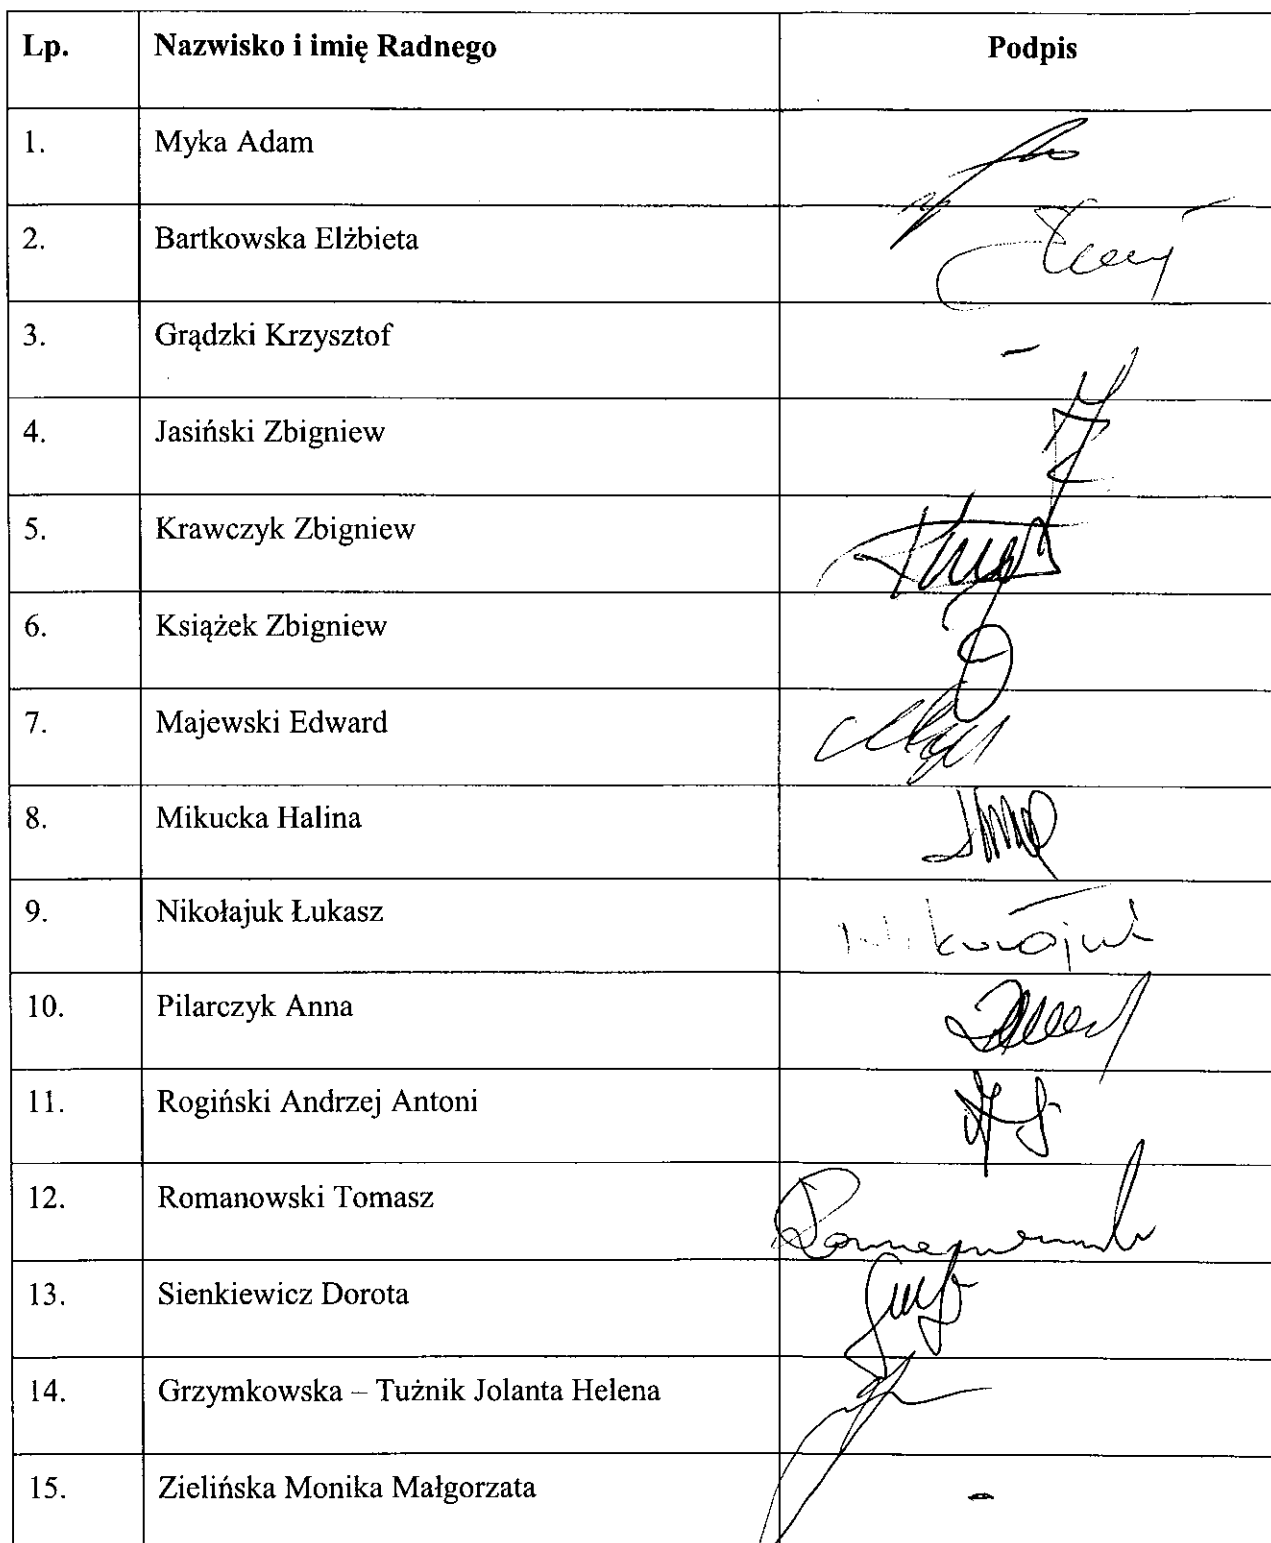 Lp. Nazwisko i imię Radnego Podpis
1. Myka Adam
2. Bartkowska Elżbieta
3. Grądzki Krzysztof -
4. Jasiński Zbigniew
5. Krawczyk Zbigniew
6. Książek Zbigniew
7. Majewski Edward
8. Mikucka Halina
9. Nikołajuk Łukasz Nikołajuk
10. Pilarczyk Anna
11. Rogiński Andrzej Antoni
12. Romanowski Tomasz
13. Sienkiewicz Dorota
14. Grzymkowska – Tużnik Jolanta Helena
15. Zielińska Monika Małgorzata -